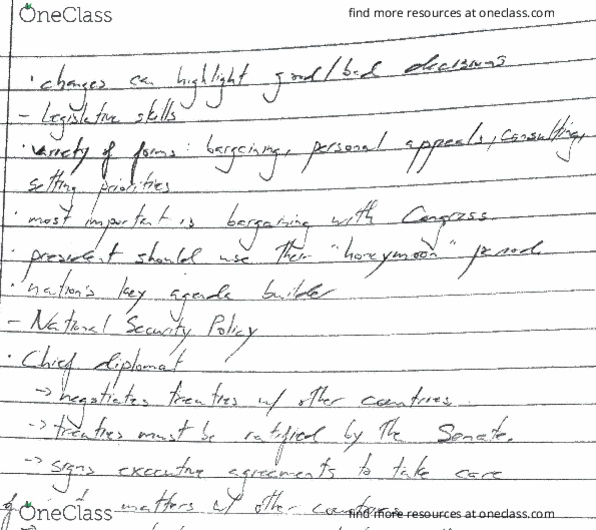 OneClass
find more resources at oneclass.com
· changes can highlight good/bad decisions
- Legislative skills
· variety of forms: bargaining, personal appeals, consulting,
setting priorities
· most important is bargaining with Congress
· president should use their "honeymoon" period
· nation's key agenda builder
- National Security Policy
· Chief diplomat
→ negotiates treaties w/ other countries.
→ treaties must be ratified by the Senate.
→ signs executive agreements to take care
of matters w/ other countries
OneClass
find more resources at oneclass.com